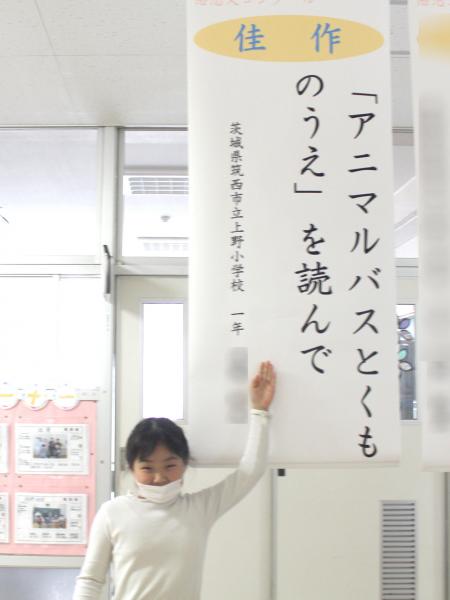 佳作
「アニマルバスとくも
のうえ」を読んで
茨城県筑西市立上野小学校 一年
ーナー